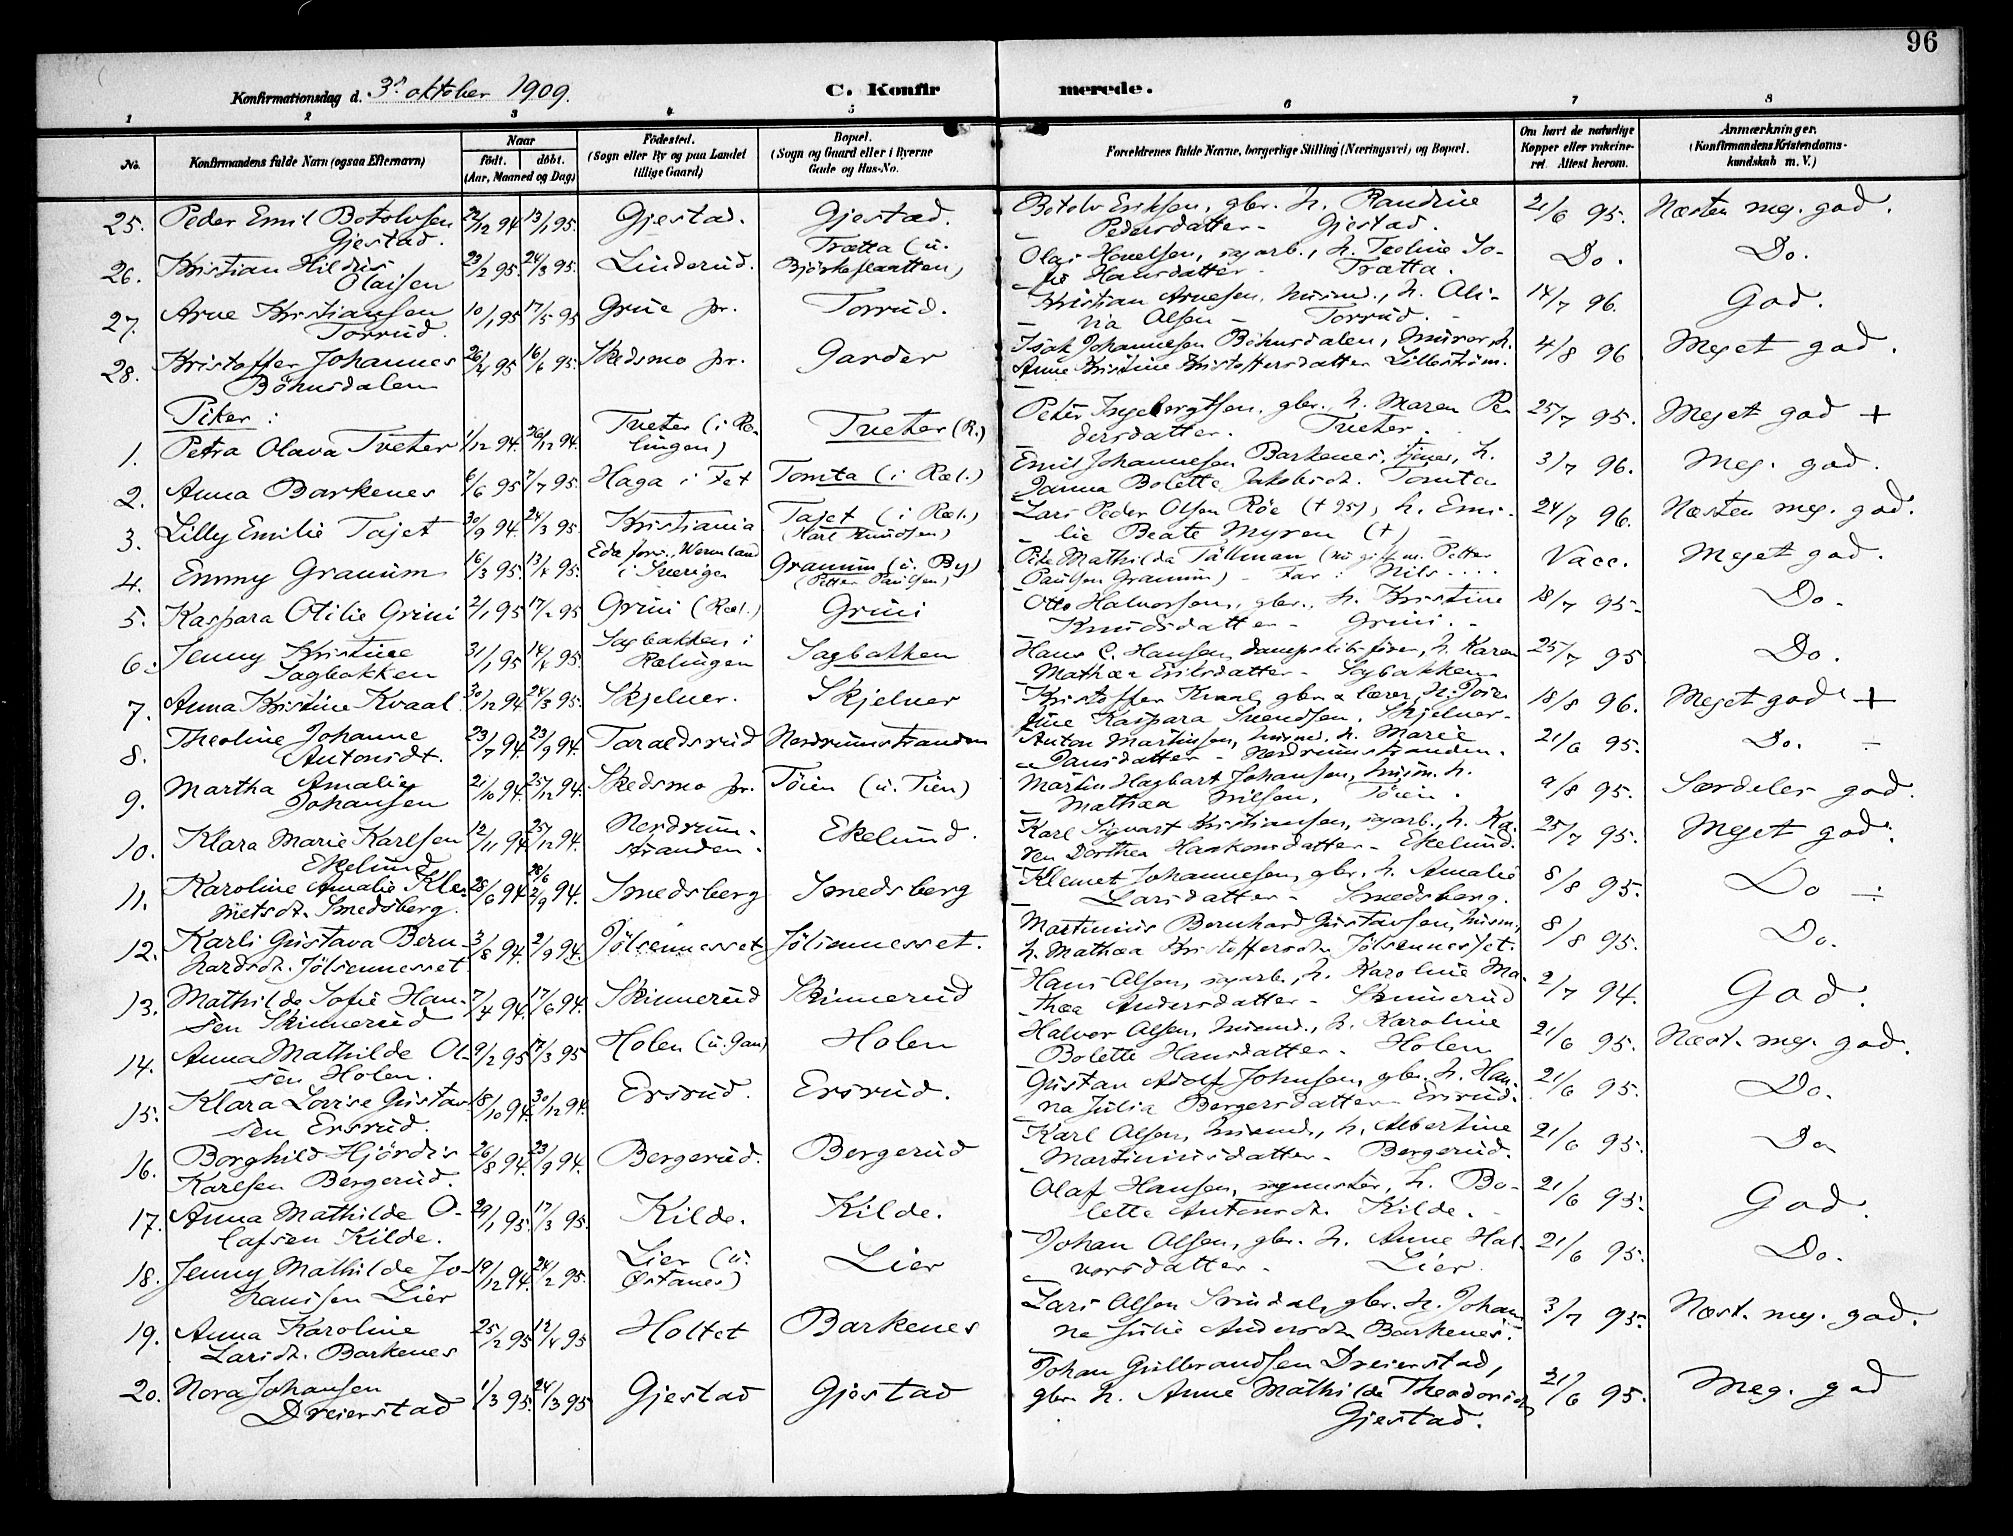 96
Konfirmationsdag d. 3die oktober 1909.
C. Konfirmerede.
1 2 3 4 5 6 7 8
No.
Konfirmandens fulde Navn (ogsaa Efternavn)
Naar
født. døbt.
(Aar, Maaned og Dag)
Födested.
(Sogn eller By og paa Landet
tillige Gaard)
Bopæl.
(Sogn og Gaard eller i Byerne
Gade og Hus-No.
Forældrenes fulde Navne, borgerlige Stilling (Næringsvei) og Bopæl.
Om havt de naturlige
Kopper eller vakcine-
ret. Attest herom.
Anmærkninger.
(Konfirmandens Kristendoms-
kundskab m. V.)
25. Peder Emil Botolvsen Gjestad. 22/12 94 13/1 95. Gjestad. Gjestad. Botolv Eriksen, gbr. h. Randine Pedersdatter - Gjestad. 21/6 95. Næsten meg. god.
26. Kristian Hildris Olaisen 23/2 95. 24/3 95. Linderud. Trætta (u. Björkeslaatten) Olai Hanelsen, sagarb., h. Teoline So- fie Hansdatter - Trætta. Do. Do.
27. Arne Kristiansen Torrud. 10/1 95 17/5 95 Grue pr. Torrud. Kristian Arnesen, husmd., h. Oli- via Olsen - Torrud. 14/7 96. God.
28. Kristoffer Johannes Böhnsdalen 26/4 95 16/6 95. Skedsmo pr. Garder Isak Johannesen Böhnsdalen, murer, h. Anne Kristine Kristoffersdatter Lilleström. 4/8 96 Meget god.
Piker:
1. Petra Olava Tveter 1/12 94. 26/12 94. Tveter (i Ræ- lingen) Tveter (R.) Peter Ingebrigtsen, gbr. h. Maren Pe dersdatter. Tveter. 25/7 95. Meget god +
2. Anna Barkenes 6/6 95 7/7 95. Haga i Fet Tomta (i Ræl.) Emil Johannesen Barkenes, tjener, h. Janna Bolette Jakobsdt. Tomta 3/7 96. Meg. god.
3. Lilly Emilie Tajet 30/9 94. 24/3 95. Kristiania Tajet (i Ræl.) (Karl Knudsen) Lars Peder Olsen Röe († 95), h. Emi- lie Beate Myren (†) 24/7 96. Næsten meg. god.
4. Emmy Granum 16/3 95. 13/4 95. Eda fors., Wermland i Sverige Granum (u. By) (Petter Paulsen) Pike Mathilda Tällman (nu gift m. Petter Paulsen Granum) - Far: Nils .... Vacc. Meget god.
5. Kaspara Otilie Grini 2/1 95 17/2 95 Grini (Ræl.) Grini Otto Halvorsen, gbr., h. Kristine Knudsdatter - Grini. 18/7 95. Do.
6. Jenny Kristine Sagbakken 31/1 95 14/4 95. Sagbakken i Rælingen Sagbakken Hans C. Hansen, dampskibsfører, h. Karen Mathæa Eriksdatter - Sagbakken 25/7 95 Do.
7. Anna Kristine Kvaal 30/12 94 24/3 95. Skjelver. Skjelver Kristoffer Kvaal, gbr. & lærer, h. Jose fine Kaspara Svendsen, Skjelver. 18/8 96. Meget god +
8. Theoline Johanne Antonsdt. 23/7 94. 23/9 94. Taraldsrud Nordrumstranden Anton Martinsen, husmd. h. Marie Jansdatter - Nordrumstranden. 21/6 95. Do. ÷
9. Martha Amalie Johansen 21/10 94. 25/12 94. Skedsmo pr. Töien (u. Tien) Martin Hagbart Johansen, husm. h. Mathæa Nilsen, Töien. 9/8 95. Særdeles god.
10. Klara Marie Karlsen Ekelund 12/11 94 25/12 94. Nordrum- stranden. Ekelund. Karl Sigvart Kristiansen, sagarb., h. Ka- ren Dorthea Haakonsdatter - Ekelund. 25/7 95. Meget god.
11. Karoline Amalie Kle- metsdt. Smedsberg. 28/6 94 28/6 2/9 94. Smedsberg Smedsberg Klemet Johannesen, gbr. h. Amalie Larsdatter - Smedsberg. 8/8 95. Do ÷
12. Karli Gustava Bern- hardsdt. Jölsennesset 3/8 94. 2/9 94. Jölsennesset Jölsennesset. Martinius Bernhard Gustavsen, husm., h. Mathæa Kristoffersdt. Jölsennesset. 8/8 95. Do.
13. Mathilde Sofie Han- sen Skinnerud 7/4 94. 17/6 94. Skinnerud Skinnerud Hans Olsen, sagarb., h. Karoline Ma- thæa Andersdatter - Skinnerud 2/7 94. God.
14. Anna Mathilde Ol- sen Holen. 9/2 95 17/3 95 Holen (u. Gan) Holen Halvor Olsen, husmd., h. Karoline Bolette Hansdatter - Holen 21/6 95. Næst. meg. god.
15. Klara Lovise Gustav sen Ersrud. 18/10 94. 30/12 94. Ersrud. Ersrud. Gustav Adolf Johnsen, gbr. h. Han- na Julia Bergersdatter - Ersrud. 21/6 95. Do.
16. Borghild Hjördis Karlsen Bergerud. 26/8 94. 23/9 94. Bergerud. Bergerud Karl Olsen, husmd., h. Albertine Martiniusdatter - Bergerud. 21/6 95. Do
17. Anna Mathilde O- lafsen Kilde. 29/1 95. 17/3 95. Kilde. Kilde. Olaf Hansen, sagmester, h. Bo- lette Antonsdt. Kilde. 21/6 95. God.
18. Jenny Mathilde Jo- hansen Lier 19/12 94. 24/2 95. Lier (u. Østanes) Lier Johan Olsen, gbr. h. Anne Hal- vorsdatter - Lier 21/6 95. Do.
19. Anna Karoline Larsdt. Barkenes 25/2 95 12/4 95 Holtet Barkenes Lars Olsen Srindal, gbr. h. Johan ne Julie Andersdt. Barkenes. 3/7 95. Næst. meg. god.
20. Nora Johansen Dreierstad 1/3 95. 24/3 95 Gjestad Gjestad Johan Gulbrandsen Dreierstad, gbr. h. Anne Mathilde Theodorsdt. Gjestad. 21/6 95. Meg. god